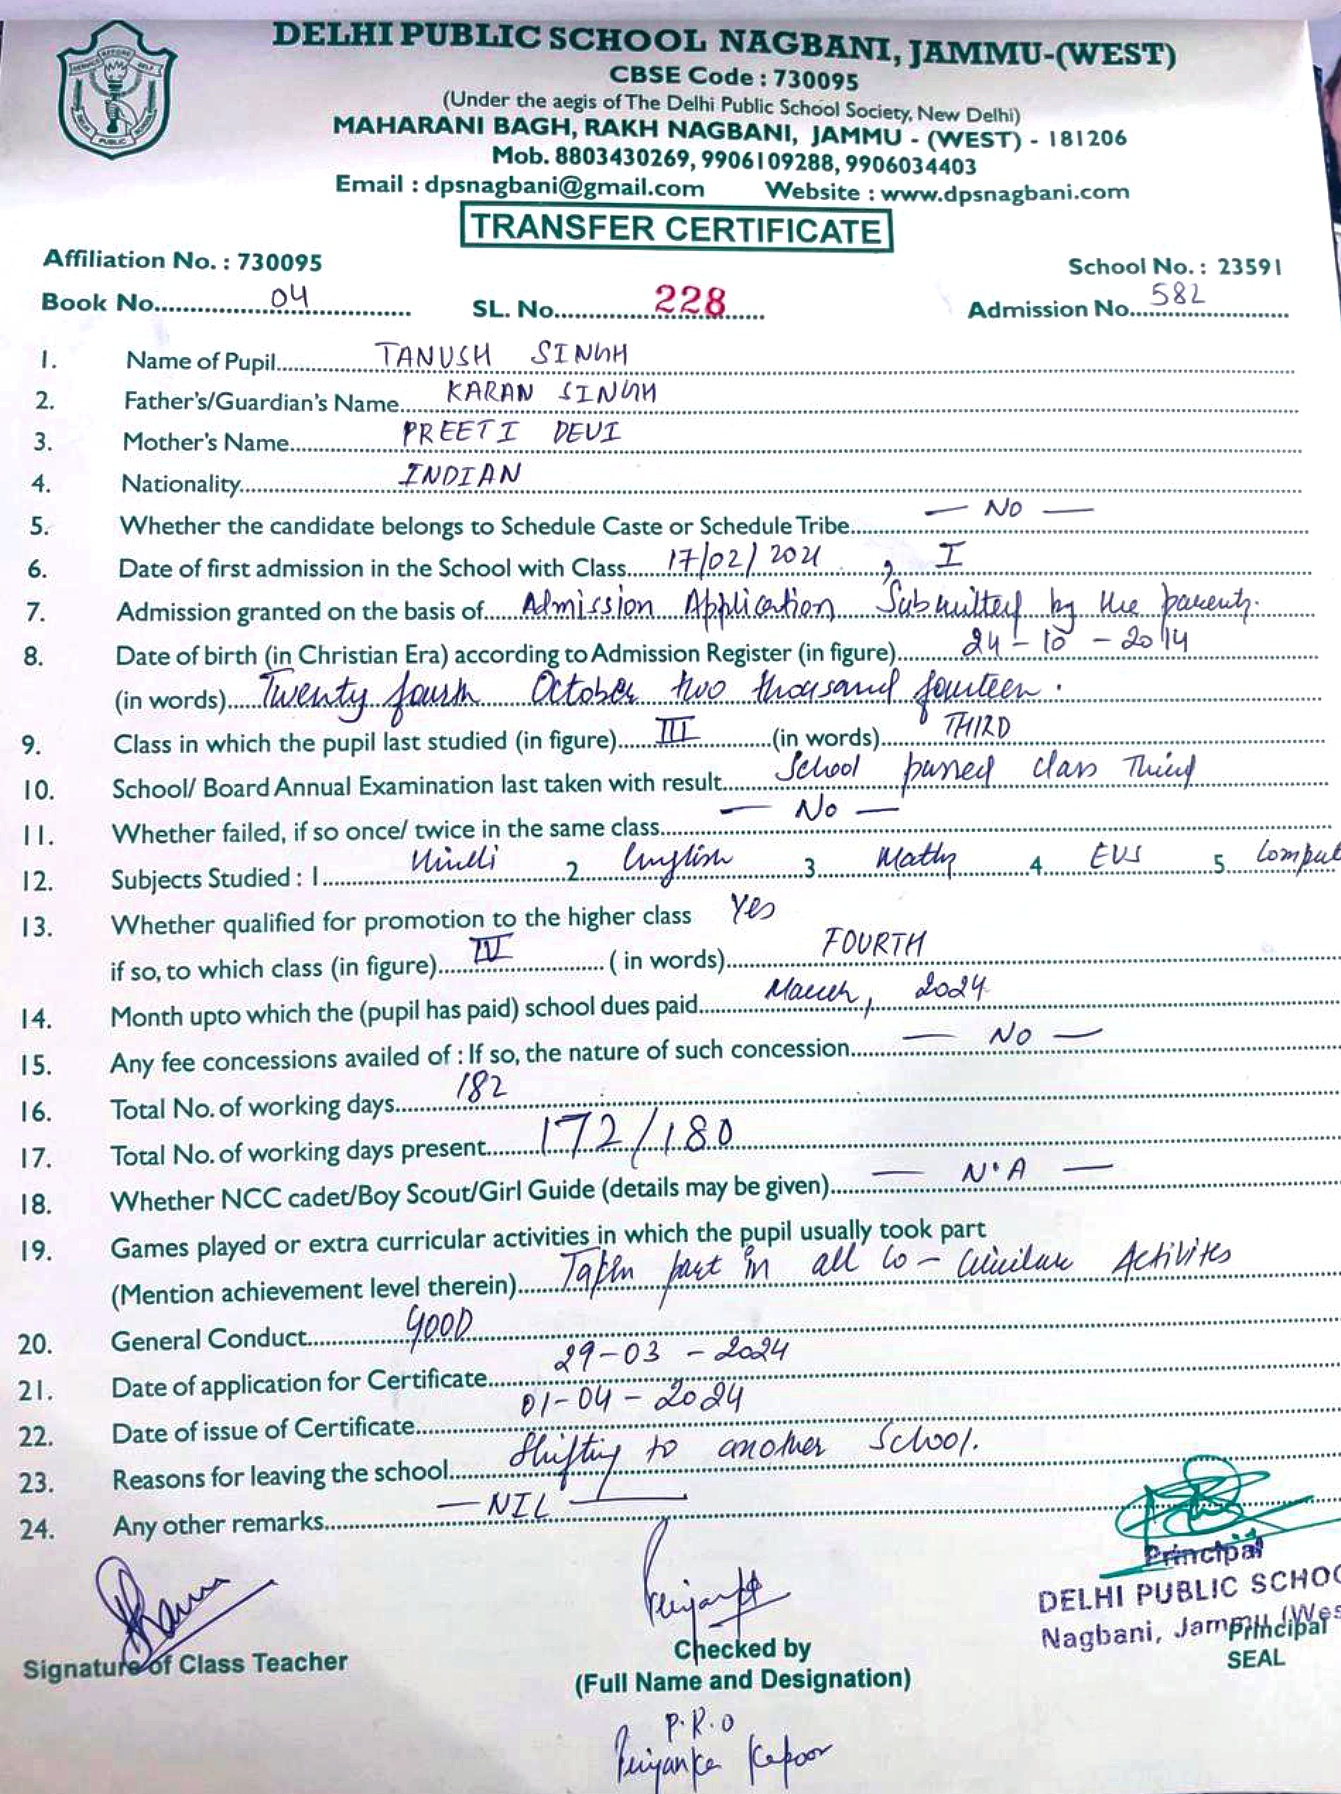 DELHI PUBLIC SCHOOL NAGBANI, JAMMU-(WEST)
CBSE Code : 730095
(Under the aegis of The Delhi Public School Society, New Delhi)
MAHARANI BAGH, RAKH NAGBANI, JAMMU - (WEST) - 181206
Mob. 8803430269, 9906109288, 9906034403
Email : dpsnagbani@gmail.com Website : www.dpsnagbani.com
TRANSFER CERTIFICATE
Affiliation No. : 730095 School No. : 23591
Book No. 04 SL. No. 228 Admission No. 582
1. Name of Pupil TANUSH SINGH
2. Father's/Guardian's Name KARAN SINGH
3. Mother's Name PREETI DEVI
4. Nationality INDIAN
5. Whether the candidate belongs to Schedule Caste or Schedule Tribe — No —
6. Date of first admission in the School with Class 17/02/2021, I
7. Admission granted on the basis of Admission Application Submitted by the parents.
8. Date of birth (in Christian Era) according to Admission Register (in figure) 24-10-2014
(in words) Twenty fourth October two thousand fourteen.
9. Class in which the pupil last studied (in figure) III (in words) THIRD
10. School/ Board Annual Examination last taken with result School passed class Third
11. Whether failed, if so once/ twice in the same class — No —
12. Subjects Studied : 1 Hindi 2 English 3 Maths 4 EVS 5. Comput
13. Whether qualified for promotion to the higher class Yes
if so, to which class (in figure) IV ( in words) FOURTH
14. Month upto which the (pupil has paid) school dues paid March, 2024
15. Any fee concessions availed of : If so, the nature of such concession — No —
16. Total No. of working days 182
17. Total No. of working days present 172/180
18. Whether NCC cadet/Boy Scout/Girl Guide (details may be given) — N.A —
19. Games played or extra curricular activities in which the pupil usually took part
(Mention achievement level therein) Taken part in all Co- Activites
20. General Conduct GOOD
21. Date of application for Certificate 29-03-2024
22. Date of issue of Certificate 01-04-2024
23. Reasons for leaving the school Shifting to another School.
24. Any other remarks — NIL —
Principal
DELHI PUBLIC SCHOO
Nagbani, Jammu (Wes
Signature of Class Teacher Checked by Principal
(Full Name and Designation) SEAL
P.R.O
Priyanka Kapoor